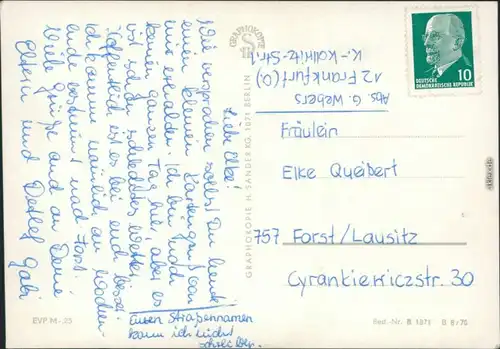 Liebe Elke!
Wie versprochen sollst Du heut
einen kleinen Kartengruß von
mir erhalten. Ich bin noch
keinen ganzen Tag hier, aber es
ist schon schlechtes Wetter.
Hoffentlich ist es bei euch besser
ich komme nämlich am Wochen-
ende bestimmt nach Forst.
Viele Grüße auch an Deine
Eltern und Detlef Gabi
Euren Straßennamen
kann ich nicht
schreiben.
EVP M -,25
GRAPHOKOPIE
GRAPHOKOPIE H. SANDER KG. 1071 BERLIN
Abs. G. Webers
12 Frankfurt (O.)
K.-Kollwitz-Str. 1
10
DEUTSCHE
DEMOKRATISCHE REPUBLIK
Fräulein
Elke Queißert
757 Forst/Lausitz
Cyrankiewiczstr. 30
Best.-Nr. B 1371 B 8/70